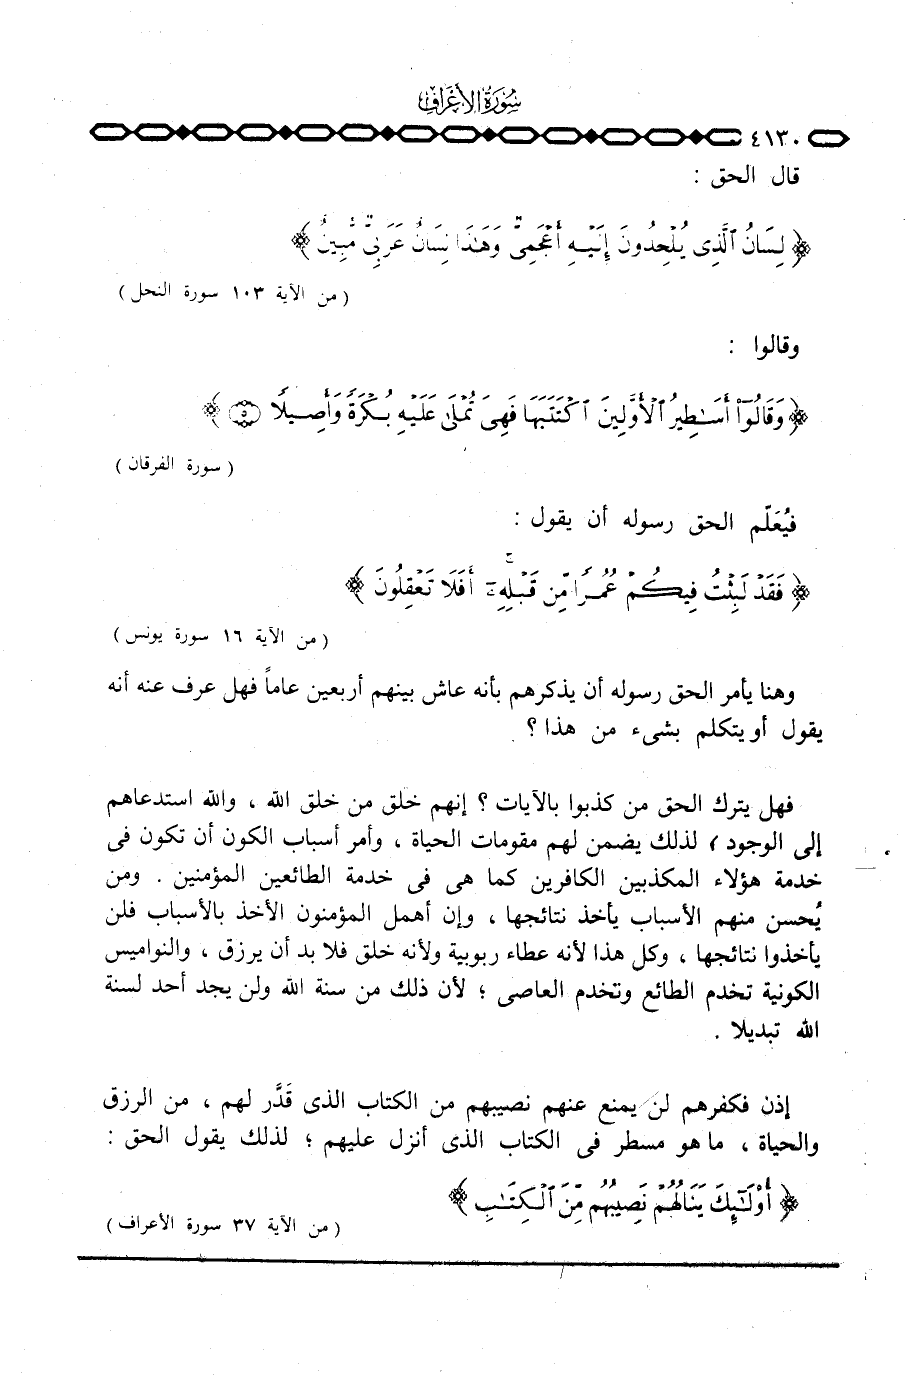 سُورَةُ الأَعْرَافِ
٤١٣٠
قال الحق :
﴿ لِسَانُ ٱلَّذِى يُلْحِدُونَ إِلَيْهِ أَعْجَمِىٌّ وَهَـٰذَا لِسَانٌ عَرَبِىٌّ مُّبِينٌ ﴾
( من الآية ١٠٣ سورة النحل )
وقالوا :
﴿ وَقَالُوٓا۟ أَسَـٰطِيرُ ٱلْأَوَّلِينَ ٱكْتَتَبَهَا فَهِىَ تُمْلَىٰ عَلَيْهِ بُكْرَةً وَأَصِيلًا ۝٥ ﴾
( سورة الفرقان )
فيُعَلّم الحق رسوله أن يقول :
﴿ فَقَدْ لَبِثْتُ فِيكُمْ عُمُرًا مِّن قَبْلِهِۦٓ ۚ أَفَلَا تَعْقِلُونَ ﴾
( من الآية ١٦ سورة يونس )
وهنا يأمر الحق رسوله أن يذكرهم بأنه عاش بينهم أربعين عاماً فهل عرف عنه أنه
يقول أو يتكلم بشىء من هذا ؟ .
فهل يترك الحق من كذبوا بالآيات ؟ إنهم خلق من خلق الله ، والله استدعاهم
إلى الوجود ، لذلك يضمن لهم مقومات الحياة ، وأمر أسباب الكون أن تكون فى
خدمة هؤلاء المكذبين الكافرين كما هى فى خدمة الطائعين المؤمنين . ومن
يُحسن منهم الأسباب يأخذ نتائجها ، وإن أهمل المؤمنون الأخذ بالأسباب فلن
يأخذوا نتائجها ، وكل هذا لأنه عطاء ربوبية ولأنه خلق فلا بد أن يرزق ، والنواميس
الكونية تخدم الطائع وتخدم العاصى ؛ لأن ذلك من سنة الله ولن يجد أحد لسنة
الله تبديلا .
إذن فكفرهم لن يمنع عنهم نصيبهم من الكتاب الذى قَدَّر لهم ، من الرزق
والحياة ، ما هو مسطر فى الكتاب الذى أنزل عليهم ؛ لذلك يقول الحق :
﴿ أُو۟لَـٰٓئِكَ يَنَالُهُمْ نَصِيبُهُم مِّنَ ٱلْكِتَـٰبِ ﴾
( من الآية ٣٧ سورة الأعراف )